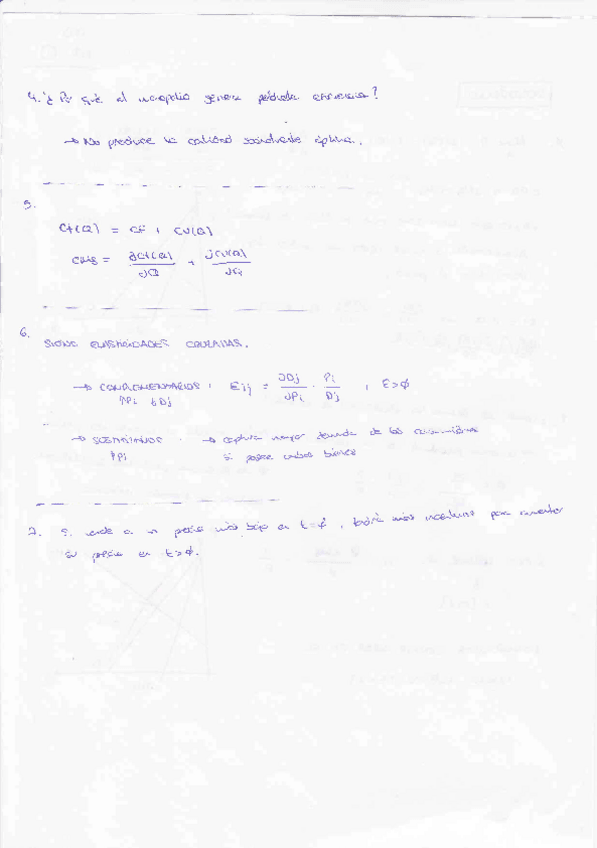 4. ¿Por qué el monopolio genera pérdida eficiencia?
→ No produce la calidad socialmente óptima.
5.
CT(Q) = CF + CV(Q)
CMg = ∂CT(Q)/∂Q + ∂CV(Q)/
6.
SIGNO ELASTICIDADES CRUZADAS.
→ COMPLEMENTARIOS: Eij = ∂Dj/∂Pi · Pi/Dj , E>∅
↑Pi ↓Dj
→ SUSTITUTIVOS → captura mayor demanda de los consumidores
↑Pi si posee ambos bienes
7. Si vende a un precio más bajo en t=∅, tendrá más incentivos para aumentar
su precio en t>∅.